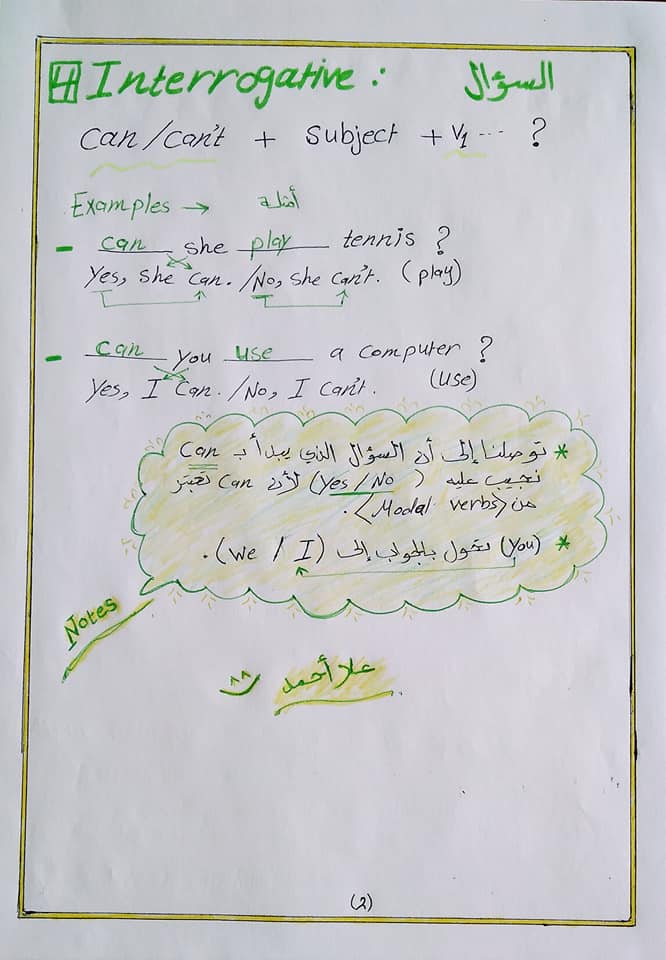 4 Interrogative : السؤال
Can/Can't + Subject + V1 ... ?
Examples → أمثلة
- can she play tennis ?
Yes, she can. /No, she can't. (play)
- can you use a computer ?
Yes, I can. /No, I can't. (use)
* توصلنا إلى أن السؤال الذي يبدأ بـ can
نجيب عليه (Yes / No) لأن can تعتبر
من <Modal verbs>.
* (you) تحول بالجواب إلى (we / I).
Notes
علا أحمد
(2)